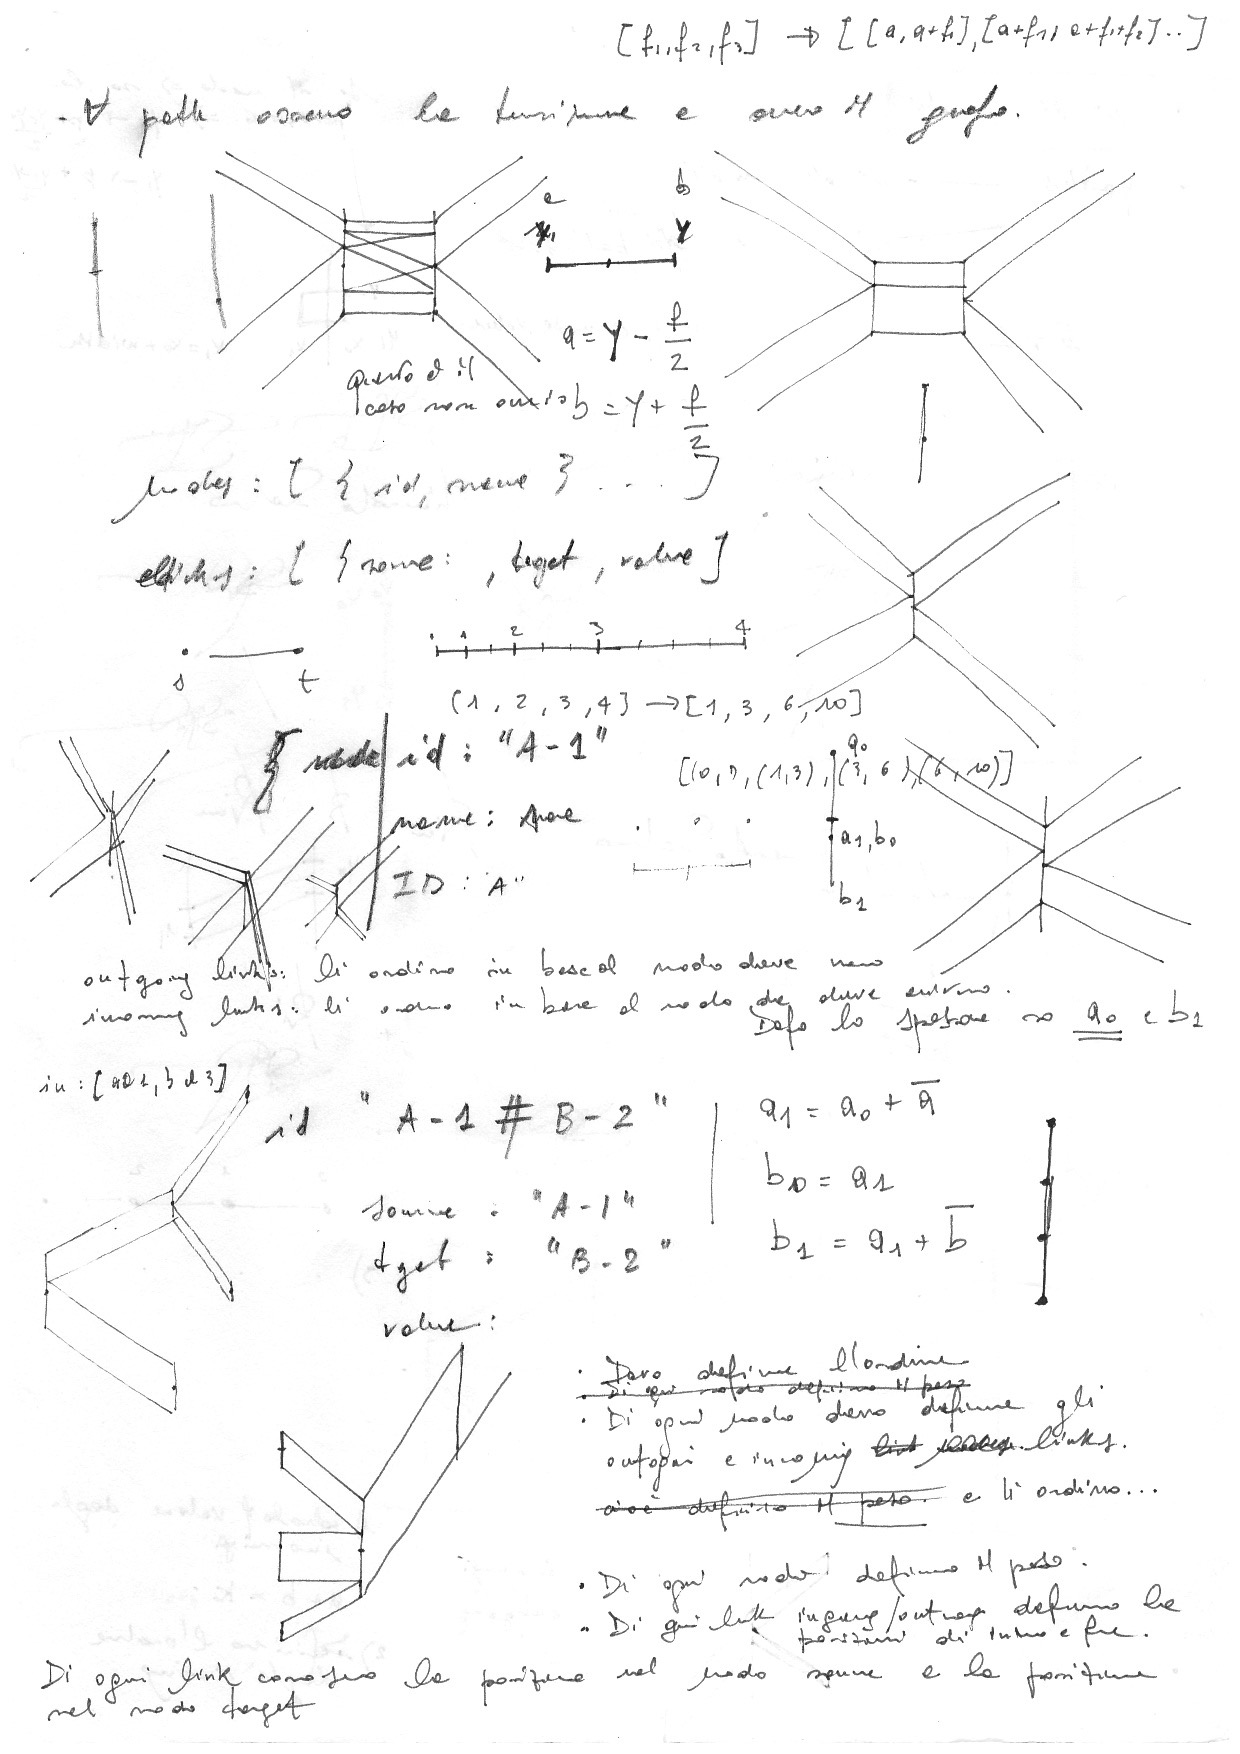 [f₁, f₂, f₃] → [[a, a+f₁], [a+f₁, a+f₁+f₂]..]
. ∀ path la e il grafo.
a b
x₁ y
a = y - f/2
questo è il
caso non b = y + f/2
nodes : [ { id, name } . . . . ]
links : [ { source : , target , value ]
s t
1 2 3 4
[1, 2, 3, 4] → [1, 3, 6, 10]
{ node id : "A-1"
[(0, 1), (1, 3), (3, 6), (6, 10)]
a₀
name : name
a1, b₀
ID : "A"
b1
outgoing links: li ordino in base al nodo dove vanno
incoming links: li ordino in base al nodo da dove entrano.
Dopo lo so a₀ e b1
in : [a 1, b 3]
id "A-1 # B-2"
a1 = a₀ + a̅
b₀ = a1
source : "A-1"
target : "B-2"
b1 = a1 + b̅
value :
. Devo definire l'ordine
. Di ogni nodo definisco il peso
. Di ogni nodo devo definire gli
outgoing e incoming links.
cioè definisco il peso. e li ordino...
. Di ogni nodo definisco il peso.
. Di ogni link ingoing/outgoing definisco le
posizioni di inizio e fine.
Di ogni link conosco la posizione nel nodo source e la posizione
nel nodo target